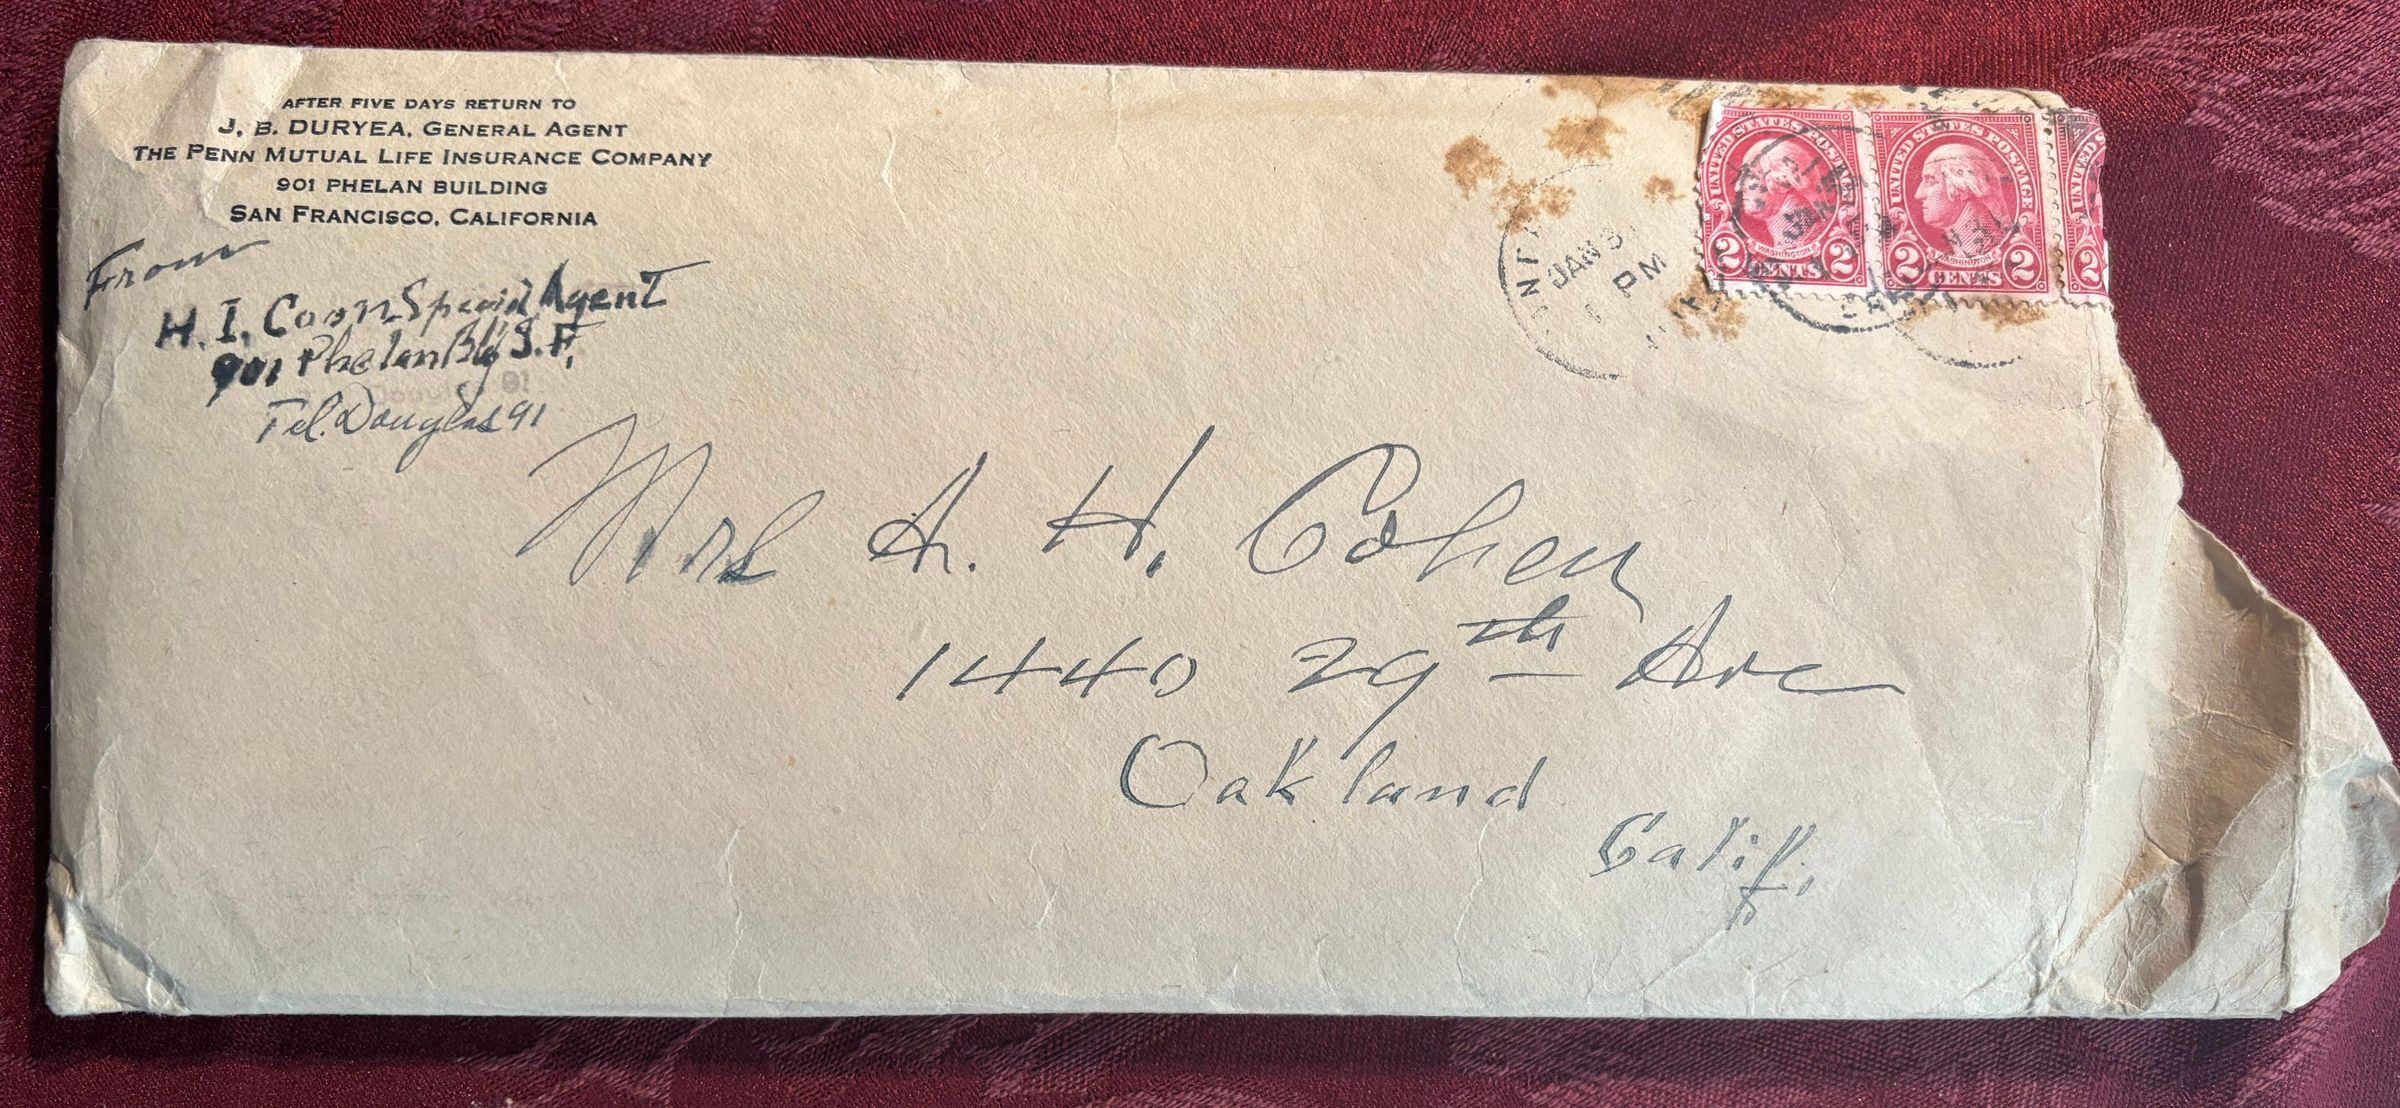 AFTER FIVE DAYS RETURN TO
J. B. DURYEA, GENERAL AGENT
THE PENN MUTUAL LIFE INSURANCE COMPANY
901 PHELAN BUILDING
SAN FRANCISCO, CALIFORNIA
From
H. I. Coon Special Agent
901 Phelan Bldg S.F.
Tel. Douglas 91
JAN 31
PM
UNITED STATES POSTAGE
WASHINGTON
2 CENTS 2
UNITED STATES POSTAGE
WASHINGTON
2 CENTS 2
UNITED S
2
Mrs A. H. Cohen
1440 29th Ave
Oakland
Calif.